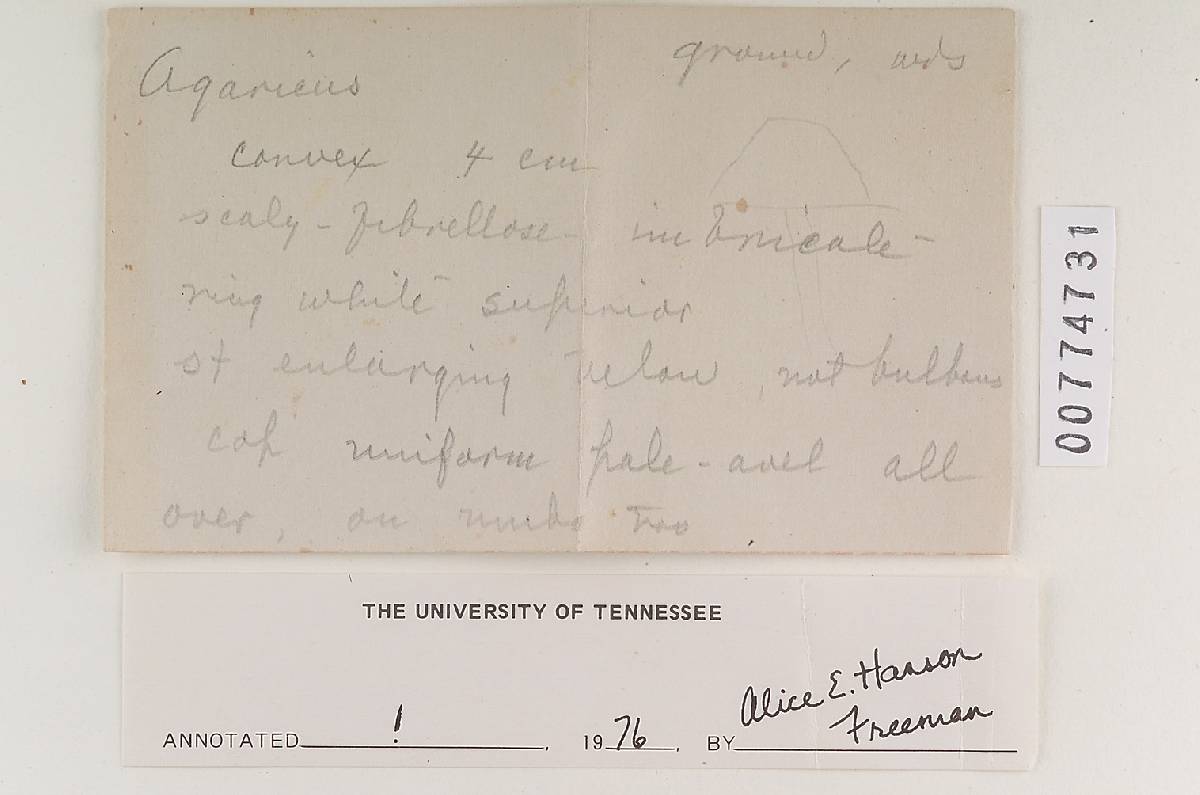 Agaricus
ground, wds
convex 4 cm
scaly - fibrellose - imbricate -
ring white superior
st enlarging below, not bulbous
cap uniform pale - avel all
over, on umbo too
THE UNIVERSITY OF TENNESSEE
ANNOTATED ! , 1976, BY Alice E. Hanson
Freeman
00774731